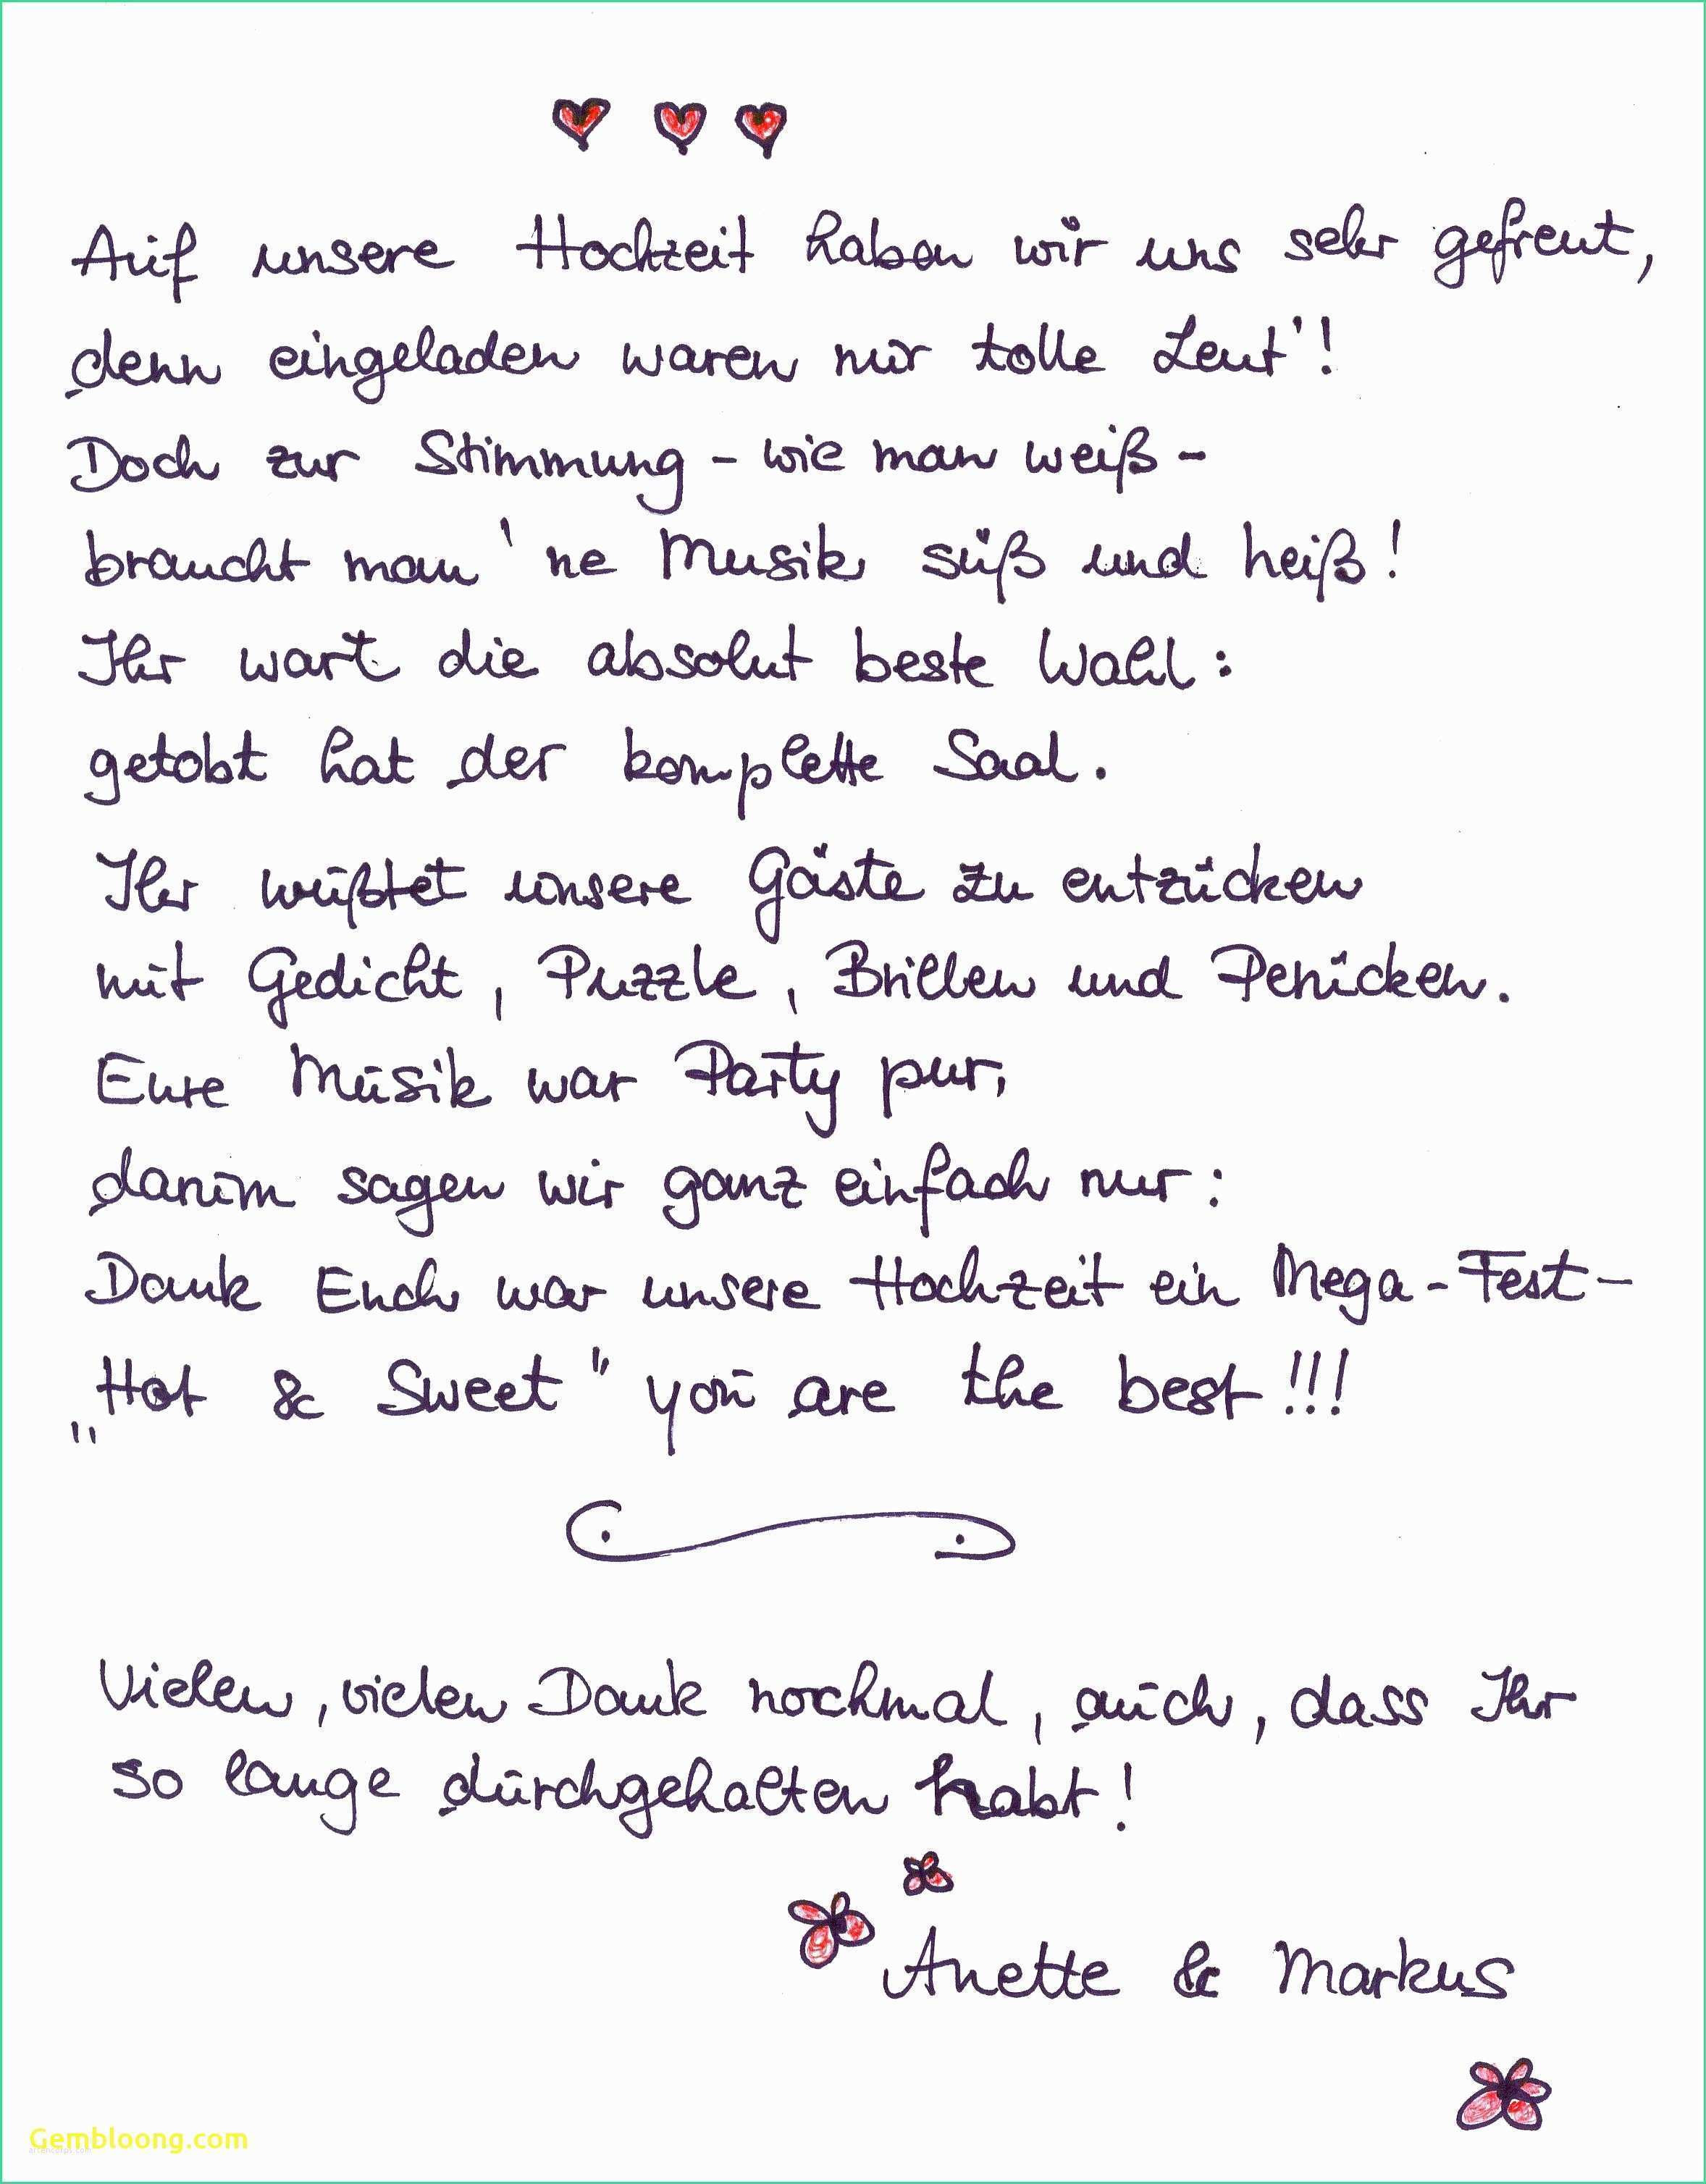 Auf unsere Hochzeit haben wir uns sehr gefreut,
denn eingeladen waren nur tolle Leut'!
Doch zur Stimmung - wie man weiß -
braucht man 'ne Musik süß und heiß!
Ihr wart die absolut beste Wahl:
getobt hat der komplette Saal.
Ihr wußtet unsere Gäste zu entzücken
mit Gedicht, Puzzle, Brillen und Perücken.
Eure Musik war Party pur,
darum sagen wir ganz einfach nur:
Dank Euch war unsere Hochzeit ein Mega-Fest-
„Hot & Sweet" you are the best!!!
Vielen, vielen Dank nochmal, auch, dass Ihr
so lange durchgehalten habt!
Anette & Markus
Gembloong.com